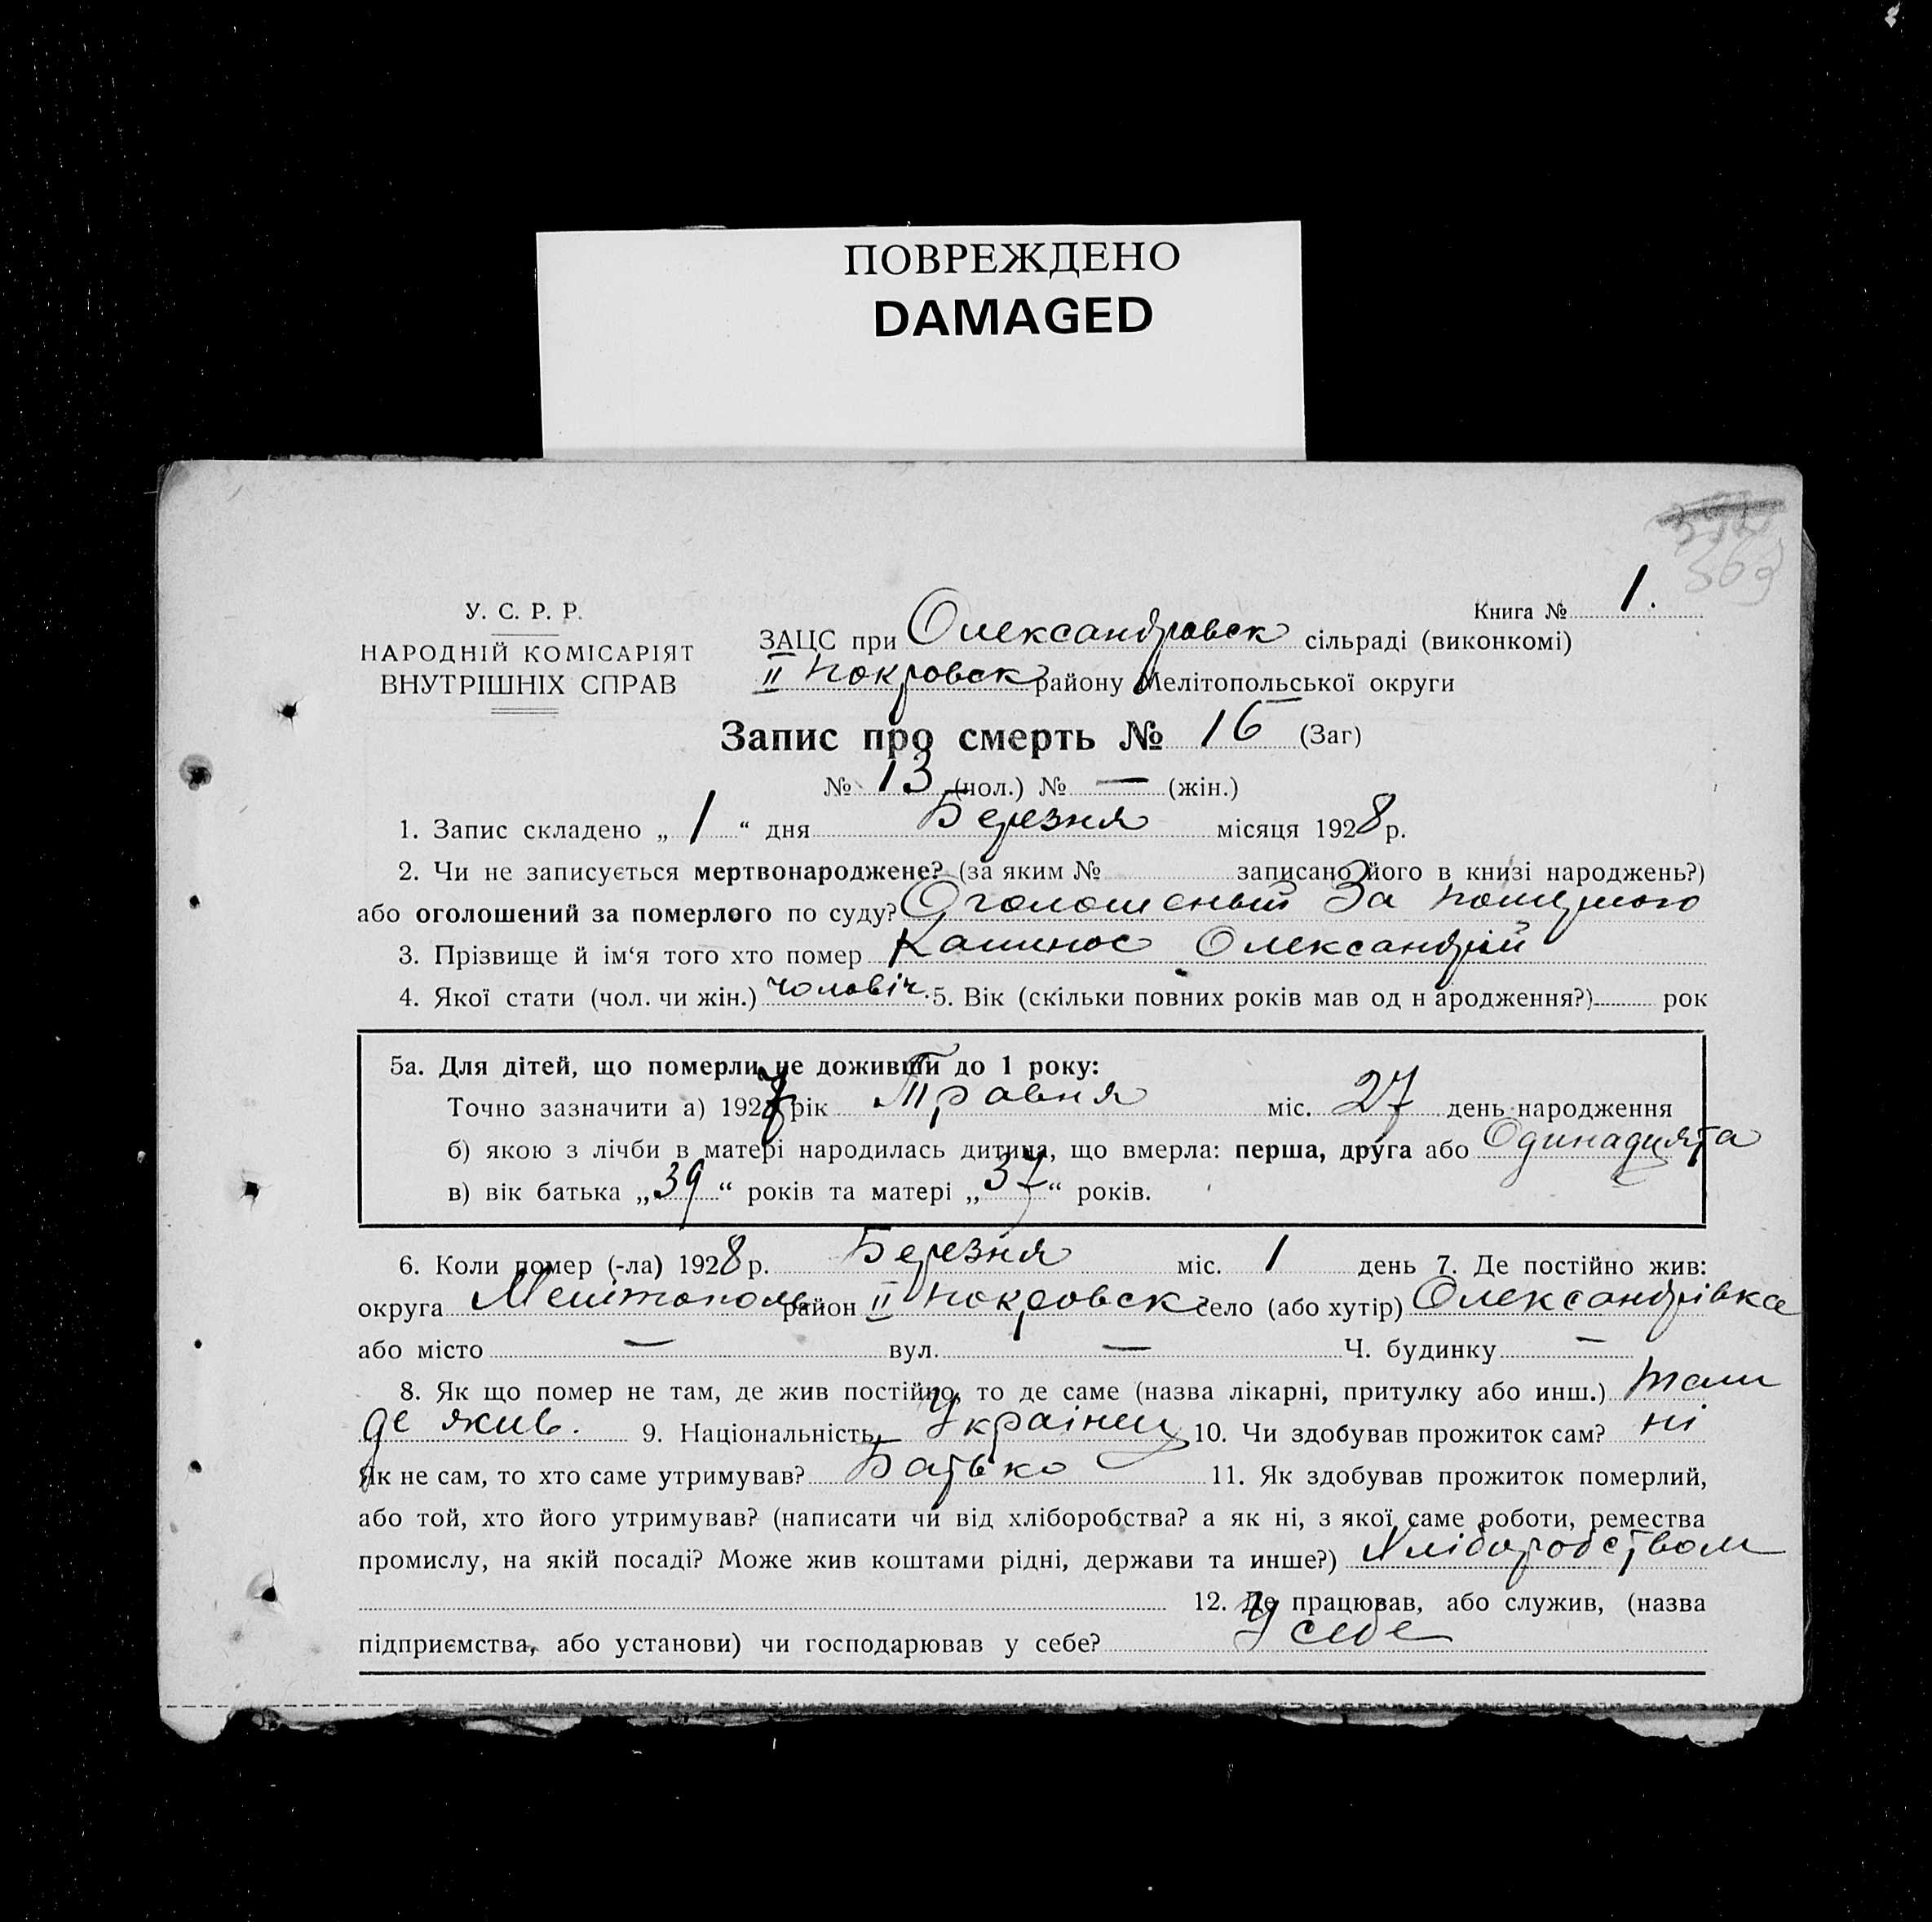 ПОВРЕЖДЕНО
DAMAGED
363
У. С. Р. Р.
НАРОДНІЙ КОМІСАРІЯТ
ВНУТРІШНІХ СПРАВ
Книга № 1.
ЗАЦС при Олександровск сільраді (виконкомі)
II Покровск району Мелітопольської округи
Запис про смерть № 16 (Заг)
№ 13 (чол.) № — (жін.)
1. Запис складено „ 1 “ дня Березня місяця 1928 р.
2. Чи не записується мертвонароджене? (за яким № записано його в книзі народжень?)
або оголошений за померлого по суду? Оголошеный За помершого
3. Прізвище й ім‘я того хто помер Калинос Олександрій
4. Якої стати (чол. чи жін.) чоловіч. 5. Вік (скільки повних років мав од н ародження?) рок
5а. Для дітей, що померли не доживши до 1 року:
Точно зазначити а) 1927 рік Травня міс. 27 день народження
б) якою з лічби в матері народилась дитина, що вмерла: перша, друга або Одинадцята
в) вік батька „39“ років та матері „37“ років.
6. Коли помер (-ла) 1928 р. Березня міс. 1 день 7. Де постійно жив:
округа Мелітополь район II Покровск село (або хутір) Олександрівка
або місто — вул. — Ч. будинку —
8. Як що помер не там, де жив постійно, то де саме (назва лікарні, притулку або инш.) там
де жив. 9. Національність Українец 10. Чи здобував прожиток сам? ні
Як не сам, то хто саме утримував? Батько 11. Як здобував прожиток померлий,
або той, хто його утримував? (написати чи від хліборобства? а як ні, з якої саме роботи, ремества
промислу, на якій посаді? Може жив коштами рідні, держави та инше?) Хліборобством
12. Де працював, або служив, (назва
підприємства, або установи) чи господарював у себе? У себе